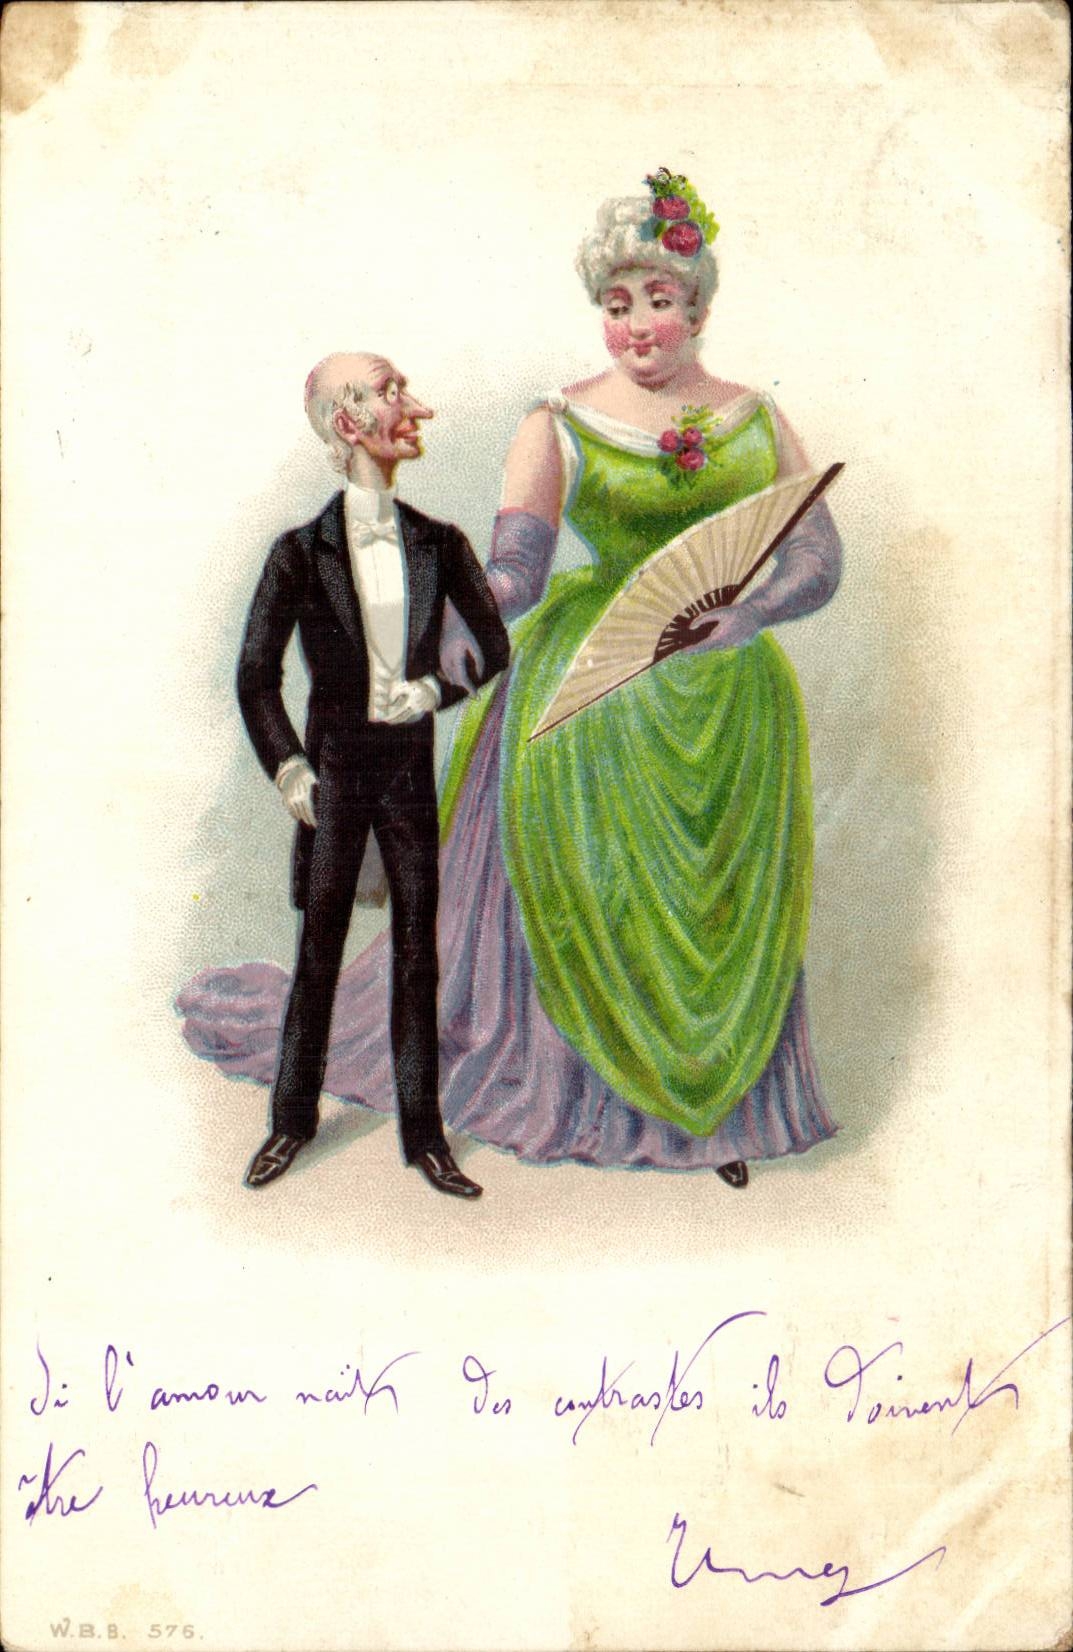 Si l'amour naît des contrastes ils doivent
être heureux
W.B.B. 576.